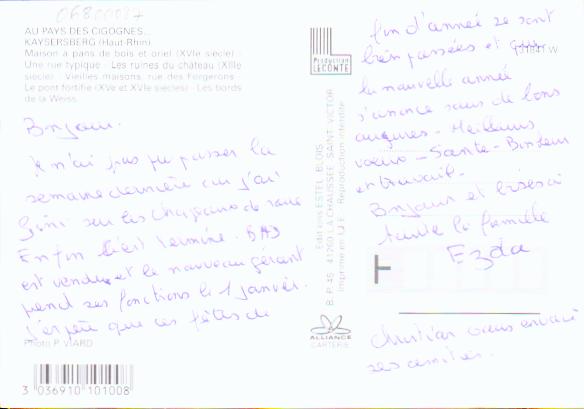 06800087
AU PAYS DES CIGOGNES...
KAYSERSBERG (Haut-Rhin)
Maison à pans de bois et oriel (XVIe siècle) -
Une rue typique - Les ruines du château (XIIIe
siècle) - Vieilles maisons, rue des Forgerons
Le pont fortifié (XVe et XVIe siècles) - Les bords
de la Weiss.
Bonjour.
Je n'ai pas pu passer la
semaine dernière car j'ai
fini sur les chapeaux de roue
Enfin c'est terminé.
est vendu et le nouveau gérant
prend ses fonctions le 1 janvier.
J'espère que ces fêtes de
Photo P. VIARD
3 036910 101008
Production
LECONTE
Editions ESTEL - BLOIS
B.P. 45 - 41260 LA CHAUSSEE SAINT-VICTOR
Imprimé en U.E. Reproduction interdite
ALLIANCE
CARTERIE
fin d'année se sont
bien passées et que
la nouvelle année
s'annonce sous de bons
augures - Meilleurs
voeux - Santé - Bonheur
et travail.
Bonjour et bises à
toute la famille
Christian vous envoie
ses amitiés.